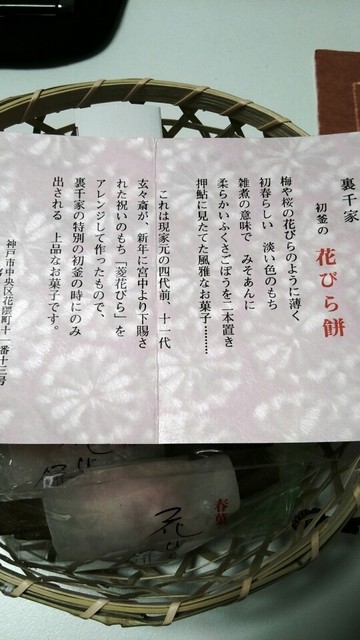 裏千家
初釜の 花びら餅
梅や桜の花びらのように薄く
初春らしい 淡い色のもち
雑煮の意味で みそあんに
柔らかいふくさごぼうを二本置き
押鮎に見たてた風雅なお菓子………
これは現家元の四代前、十一代
玄々斎が、新年に宮中より下賜さ
れた祝いのもち「菱花びら」を
アレンジして作ったもので、
裏千家の特別の初釜の時にのみ
出される 上品なお菓子です。
神戸市中央区花隈町十一番十三号
春菓
花び